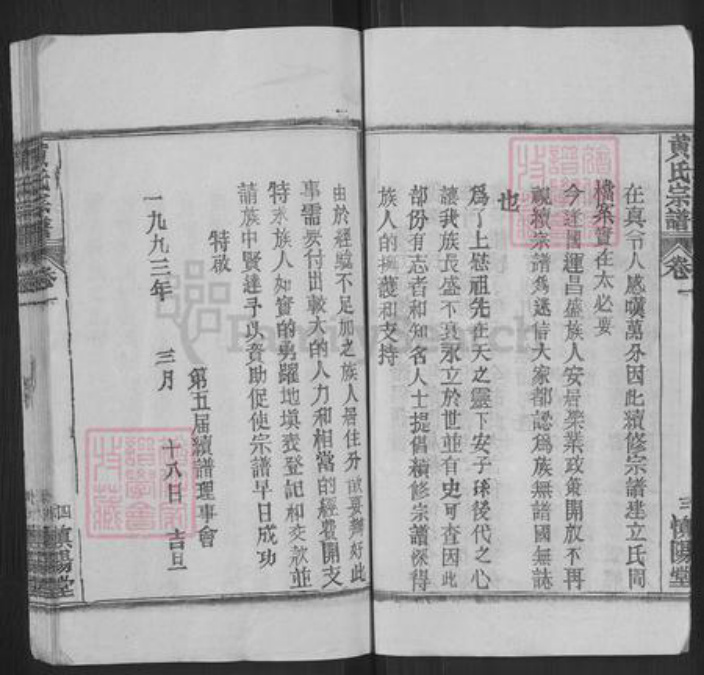 黄氏宗譜
卷一
三
慎陽堂
在真令人感嘆萬分因此續修宗譜建立氏間
檔案實在太必要
今逢國運昌盛族人安居樂業政策開放不再
視續宗譜為迷信大家都認爲族無譜國無誌
也
爲了上慰祖先在天之靈下安子孫後代之心
讓我族長盛不衰永立於世並有史可查因此
部份有志者和知名人士提倡續修宗譜深得
族人的擁護和支持
由於經驗不足加之族人居住分散要辦好此
事需要付出較大的人力和相當的經費開支
特求族人如實的勇躍地填表登記和交款並
請族中賢達予以資助促使宗譜早日成功
特啟
第五屆續譜理事會
一九九三年 三月 十八日 吉旦
黄氏宗譜
卷一
四
慎陽堂
FamilySearch